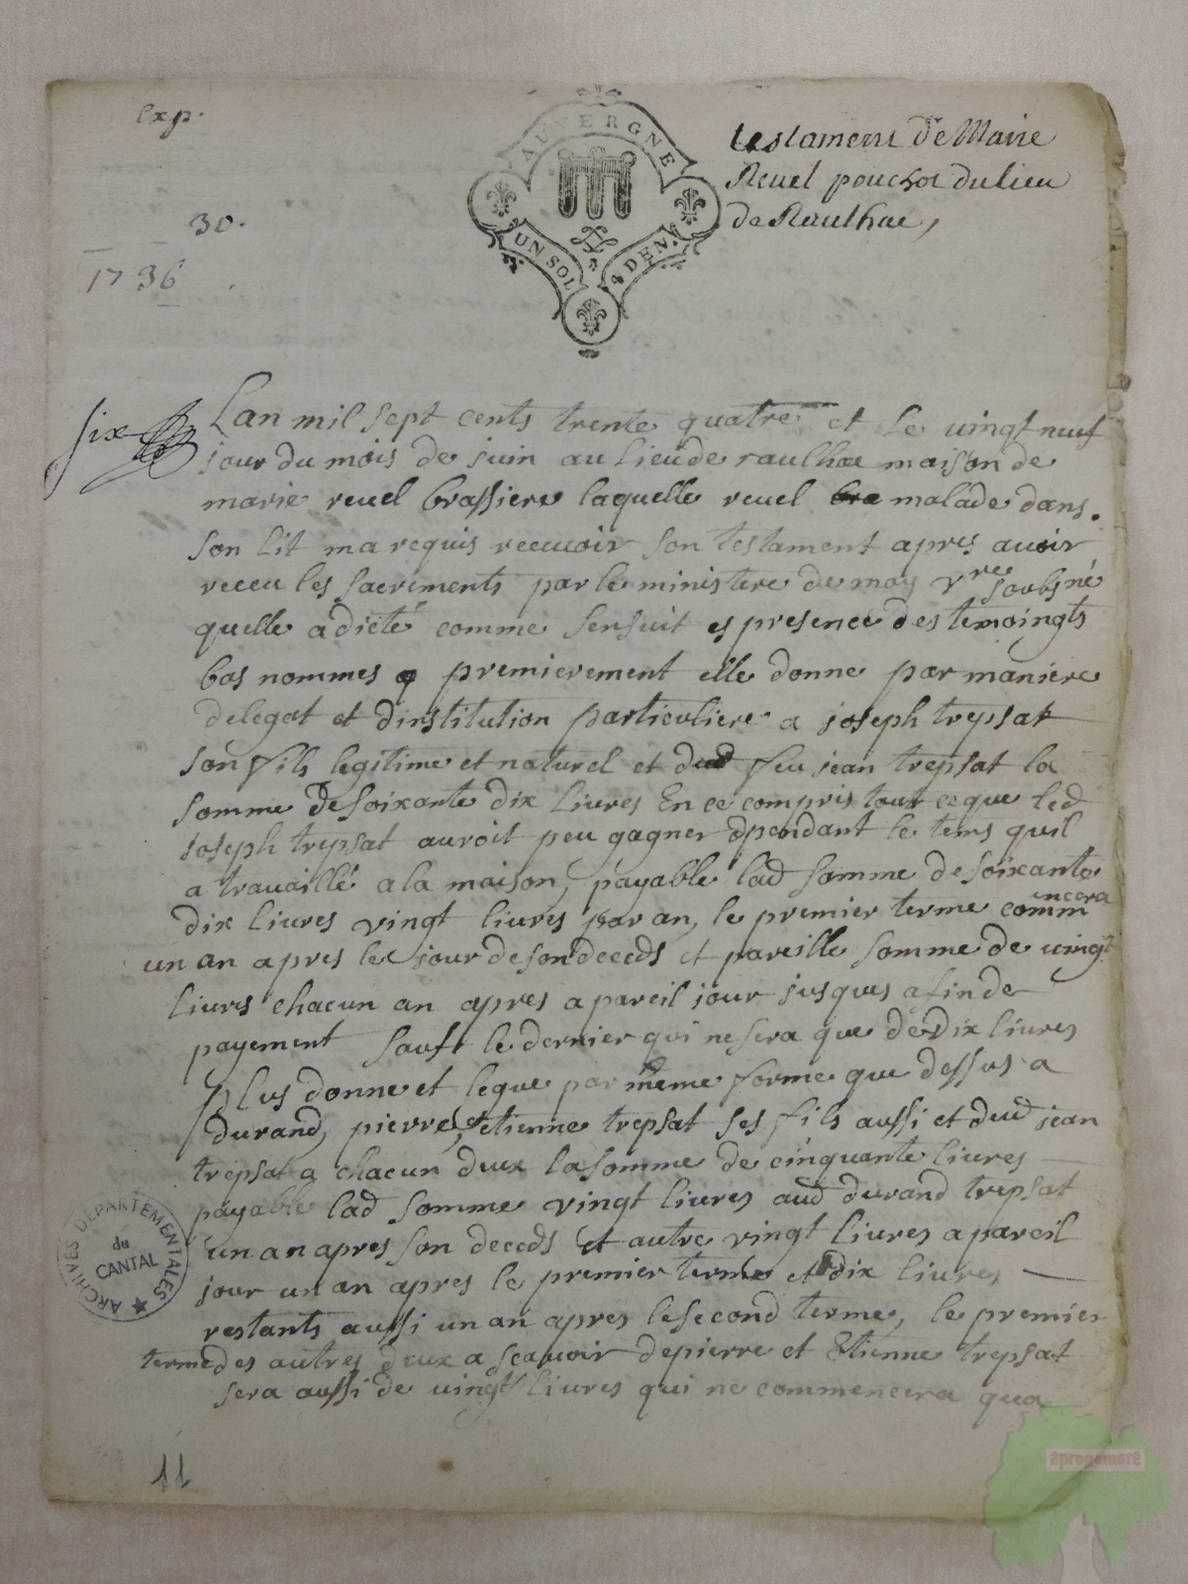 exp.
30.
1736
AUVERGNE
UN SOL 4 DEN.
testament de Marie
Revel pouchot du lieu
de Raulhac,
six
Lan mil sept cents trente quatre et le vingt neuf
jour du mois de juin au lieu de raulhac maison de
marie revel brassiere laquelle revel malade dans
son lit ma requis recevoir son testament apres avoir
receu les sacrements par le ministere de moy vre soubsné
quelle a dicté comme sensuit es presence des temoingts
bas nommes premierement elle donne par maniere
delegat et dinstitution particuliere a joseph trepsat
son fils legitime et naturel et dud feu jean trepsat la
somme de soixante dix livres En ce compris tout ce que led
joseph trepsat auroit peu gagner dpendant le tems quil
a travaillé a la maison, payable lad somme de soixante
dix livres vingt livres par an, le premier terme commencera
un an apres le jour de son deceds et pareille somme de vingt
livres chacun an apres a pareil jour jusques a fin de
payement sauft le dernier qui ne sera que de dix livres
Plus donne et legue par meme forme que dessus a
durand, pierre, et etienne trepsat ses fils aussi et dud jean
trepsat a chacun deux la somme de cinquante livres
payable lad somme vingt livres aud durand trepsat
un an apres son deceds et autre vingt livres a pareil
jour un an apres le premier terme et dix livres
restants aussi un an apres le second terme, le premier
terme des autres deux a scavoir de pierre et Etienne trepsat
sera aussi de vingt livres qui ne commencera qua
ARCHIVES DEPARTEMENTALES
du
CANTAL
11
aprogemere